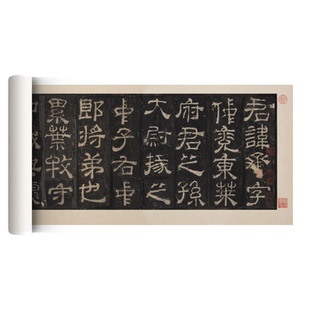 君諱承字
仲兗東萊
府君之孫
大尉掾之
中子右中
郎將弟也
累葉牧守